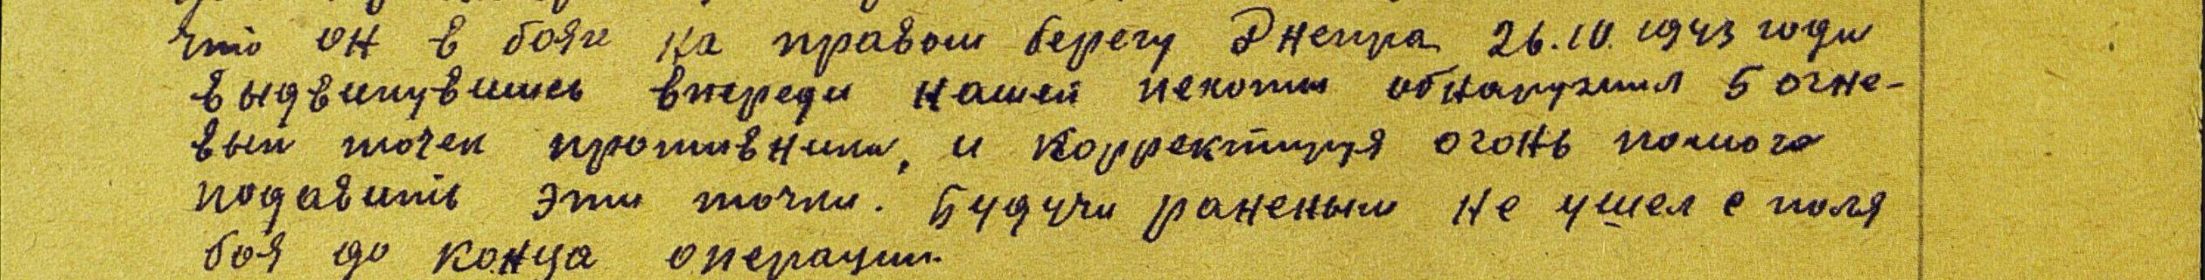 что он в боях на правом берегу Днепра 26.10.1943 года
выдвинувшись впереди нашей пехоты обнаружил 5 огне-
вых точек противника, и корректируя огонь помого
подавить эти точки. Будучи раненым не ушел с поля
боя до конца операции.